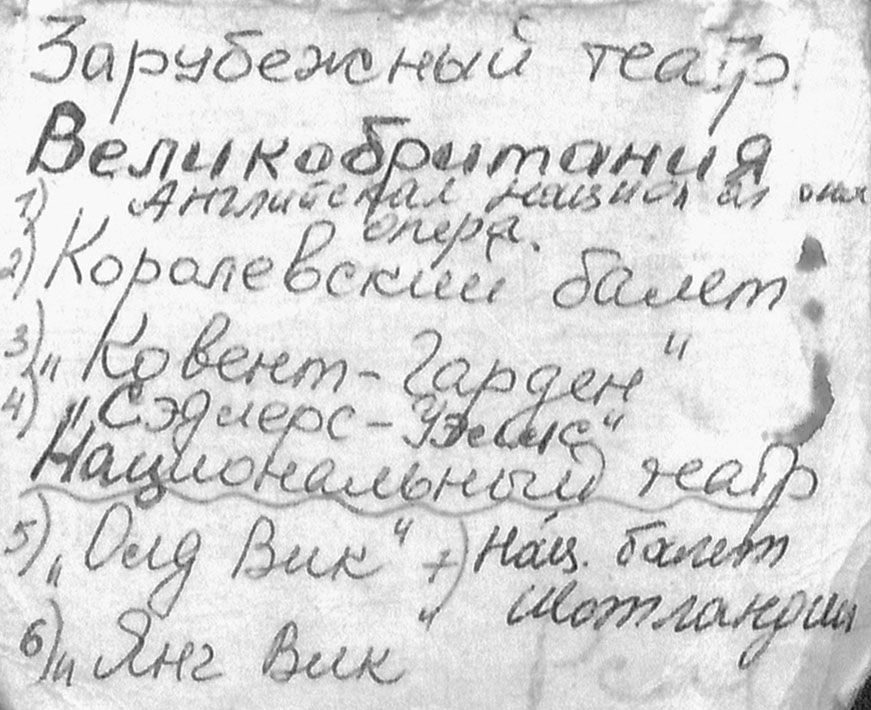 Зарубежный театр
Великобритания
1) Английская национальная
опера.
2) Королевский балет
3) „Ковент-Гарден"
4) „Сэдлерс-Уэллс"
Национальный театр
5) „Олд Вик" +) Нац. балет
Шотландии
6) „Янг Вик"